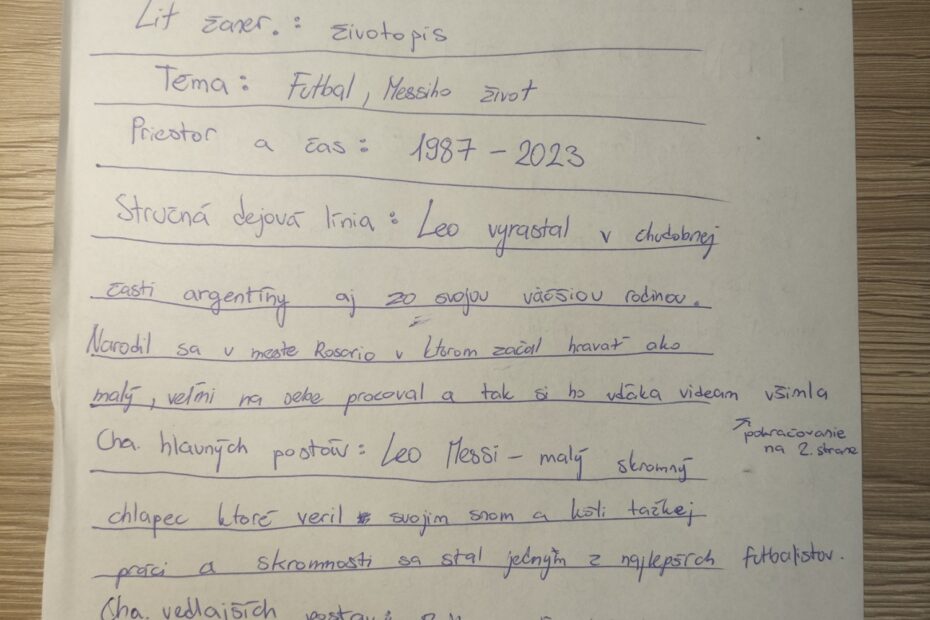 Lit žáner. : životopis
Téma : Futbal, Messiho život
Priestor a čas : 1987 - 2023
Stručná dejová línia : Leo vyrastal v chudobnej
časti argentíny aj zo svojou väčšiou rodinou.
Narodil sa v meste Rosario v ktorom začal hravať ako
malý, veľmi na sebe pracoval a tak si ho vďaka videam všimla
pokračovanie
na 2. strane
Cha. hlavných postáv : Leo Messi - malý skromný
chlapec ktoré veril svojim snom a kôli tažkej
práci a skromnosti sa stal jedným z najlepších futbalistov.
Cha. vedlajších postáv :